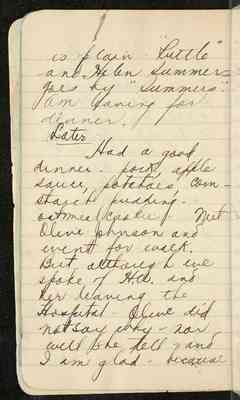 is plain "Little"
and Helen Summers
goes by "Summers"
Am having for
dinner.
Later
Had a good
dinner - pork, apple
sauce, potatoes, corn-
starch pudding -
oatmeal cookies. Met
Olive Johnson and
went for walk.
But although we
spoke of and
her leaving the
Hospital - Olive did
not say why - nor
will she tell and
I am glad - because